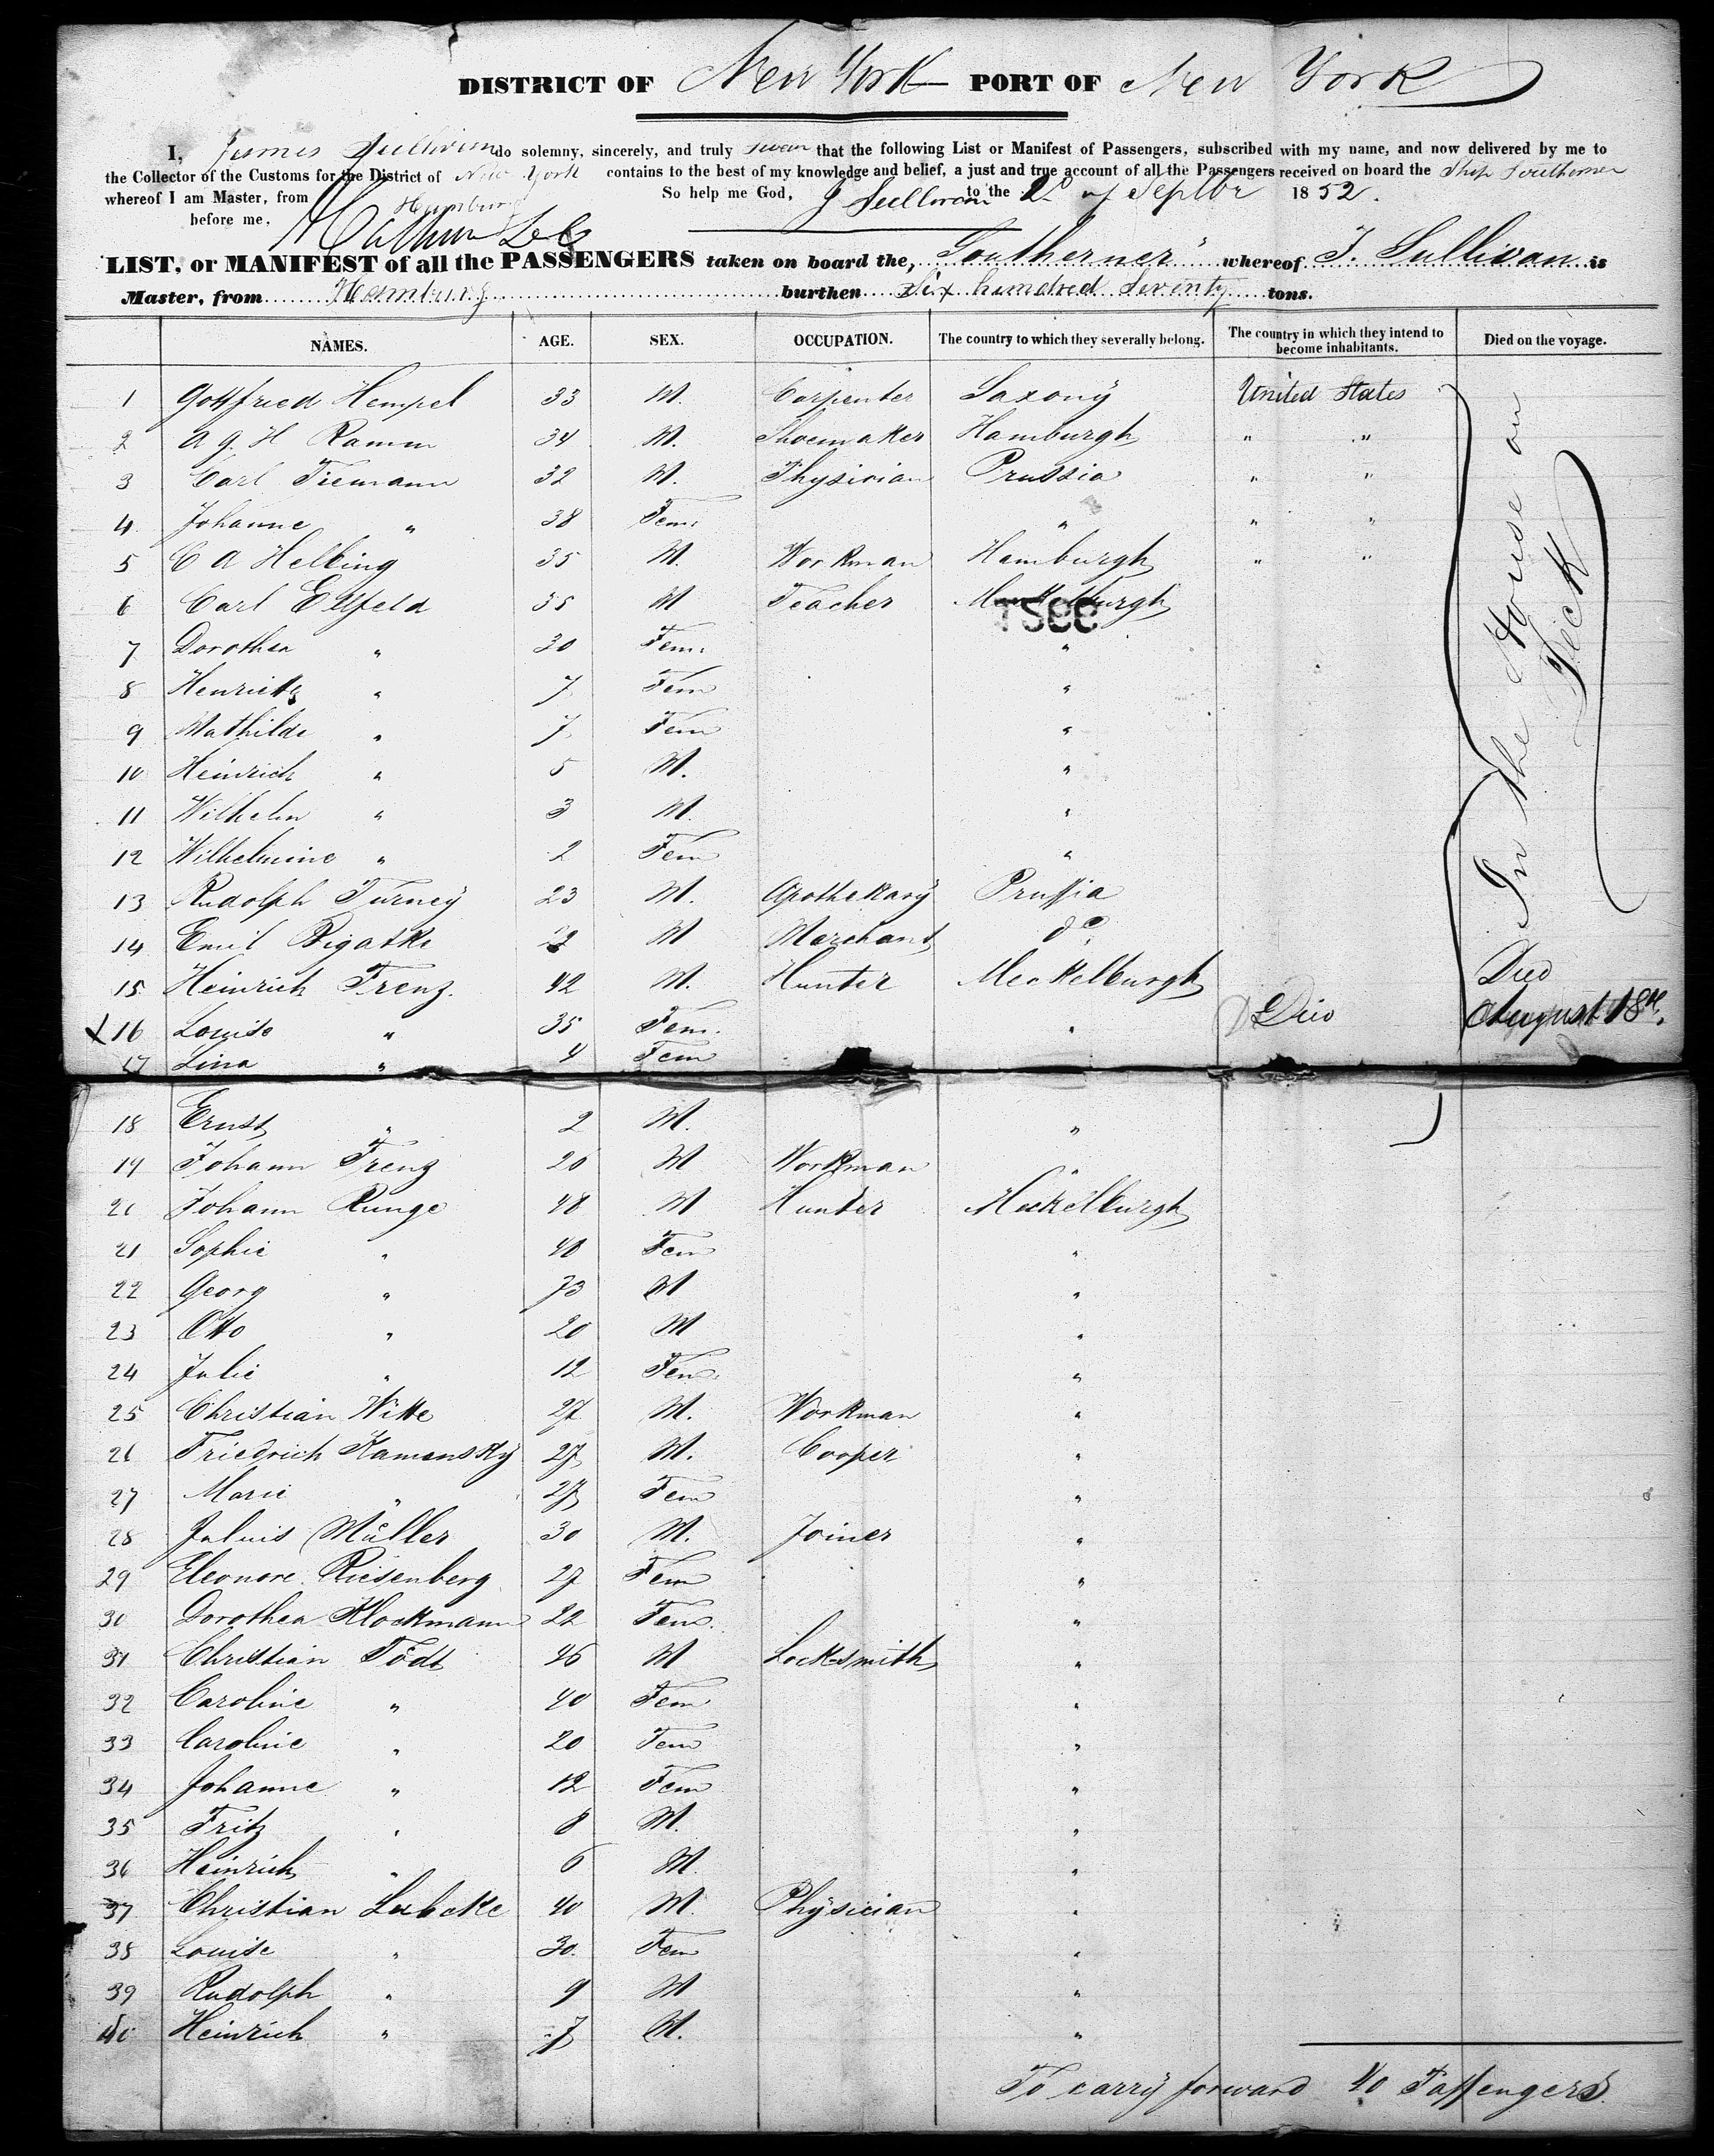 DISTRICT OF New York PORT OF New York
I, James Sullivan do solemny, sincerely, and truly swear that the following List or Manifest of Passengers, subscribed with my name, and now delivered by me to
the Collector of the Customs for the District of New York contains to the best of my knowledge and belief, a just and true account of all the Passengers received on board the Ship Southerner
whereof I am Master, from Hamburg So help me God, J Sullivan to the 2d of Septbr 1852.
before me,
LIST, or MANIFEST of all the PASSENGERS taken on board the, "Southerner" whereof J. Sullivan is
Master, from Hamburg burthen Six hundred Seventy tons.
NAMES. AGE. SEX. OCCUPATION. The country to which they severally belong. The country in which they intend to become inhabitants. Died on the voyage.
1 Gottfried Hempel 33 M. Carpenter Saxony United States
2 A G. H Ramm 34 M. Shoemaker Hamburgh " "
3 Carl Tiemann 32 M. Physician Prussia " "
4 Johanne " 38 Fem. " " "
5 C A Helbing 35 M. Workman Hamburgh " "
6 Carl Ellfeld 35 M Teacher
7 Dorothea " 30 Fem. "
8 Henriette " 7 Fem "
9 Mathilde " 7 Fem "
10 Heinrich " 5 M. "
11 Wilhelm " 3 M. "
12 Wilhelmine " 2 Fem "
13 Rudolph Turney 23 M. Apothekary Prussia
14 Emil Bigatke 22 M Marchant do
15 Heinrich Frenz. 42 M. Hunter Meckelburgh Died
16 Louise " 35 Fem. " Died August 18th.
17 Lina " 4 Fem
In the House on Deck
18 Ernst " 2 M. "
19 Johann Frenz 20 M Workman "
20 Johann Runge 48 M Hunter Meckelburgh
21 Sophie " 48 Fem "
22 Georg " 73 M "
23 Otto " 20 M "
24 Julie " 12 Fem. "
25 Christian Witte 27 M. Workman "
26 Friedrich Kamensky 27 M. Cooper "
27 Marie " 27 Fem "
28 Juluis Müller 30 M. Joiner "
29 Eleonore Riesenberg 27 Fem "
30 Dorothea Klockmann 22 Fem. "
31 Christian Födt 46 M Locksmith "
32 Caroline " 40 Fem "
33 Caroline " 20 Fem "
34 Johanne " 12 Fem "
35 Fritz " 8 M. "
36 Heinrich " 6 M. "
37 Christian Lubcke 40 M. Physician "
38 Louise " 30. Fem "
39 Rudolph " 9 M "
40 Heinrich " 7 M. "
To carry forward 40 Passengers